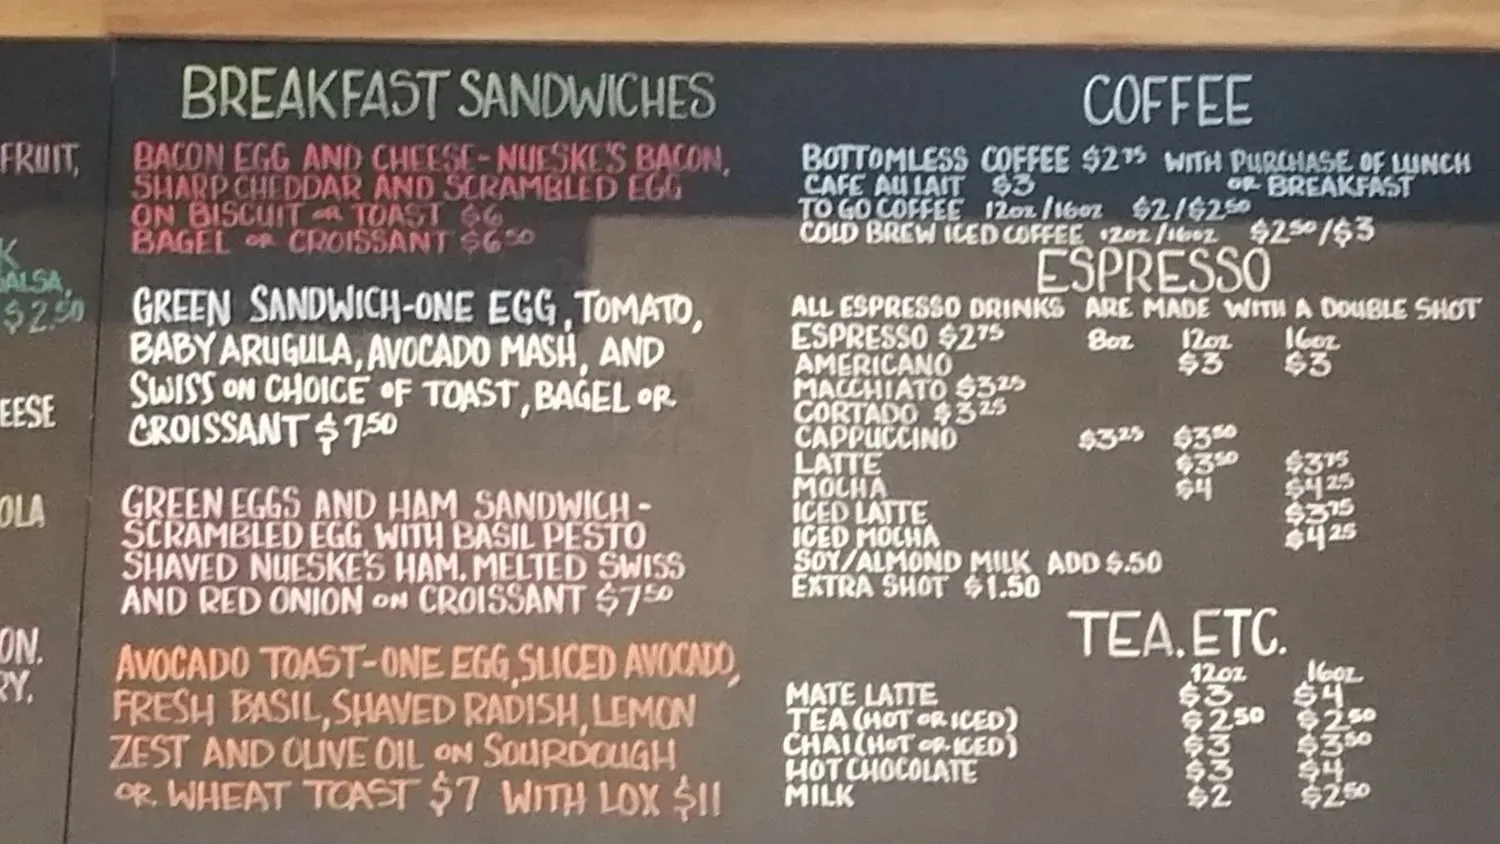 FRUIT,
K
ALSA,
$2.50
EESE
OLA
ON.
RY.
BREAKFAST SANDWICHES
BACON EGG AND CHEESE-NUESKE'S BACON,
SHARP CHEDDAR AND SCRAMBLED EGG
ON BISCUIT OR TOAST $6
BAGEL OR CROISSANT $6.50
GREEN SANDWICH-ONE EGG, TOMATO,
BABY ARUGULA, AVOCADO MASH, AND
SWISS ON CHOICE OF TOAST, BAGEL OR
CROISSANT $7.50
GREEN EGGS AND HAM SANDWICH-
SCRAMBLED EGG WITH BASIL PESTO
SHAVED NUESKE'S HAM. MELTED SWISS
AND RED ONION ON CROISSANT $7.50
AVOCADO TOAST-ONE EGG, SLICED AVOCADO,
FRESH BASIL, SHAVED RADISH, LEMON
ZEST AND OLIVE OIL ON SOURDOUGH
OR WHEAT TOAST $7 WITH LOX $11
COFFEE
BOTTOMLESS COFFEE $2.75 WITH PURCHASE OF LUNCH
CAFE AU LAIT $3 OR BREAKFAST
TO GO COFFEE 12oz/16oz $2/$2.50
COLD BREW ICED COFFEE 12oz/16oz $2.50/$3
ESPRESSO
ALL ESPRESSO DRINKS ARE MADE WITH A DOUBLE SHOT
ESPRESSO $2.75 8oz 12oz 16oz
AMERICANO $3 $3
MACCHIATO $3.25
CORTADO $3.25
CAPPUCCINO $3.25 $3.50
LATTE $3.50 $3.75
MOCHA $4 $4.25
ICED LATTE $3.75
ICED MOCHA $4.25
SOY/ALMOND MILK ADD $.50
EXTRA SHOT $1.50
TEA. ETC.
12oz 16oz
MATE LATTE $3 $4
TEA (HOT OR ICED) $2.50 $2.50
CHAI (HOT OR ICED) $3 $3.50
HOT CHOCOLATE $3 $4
MILK $2 $2.50